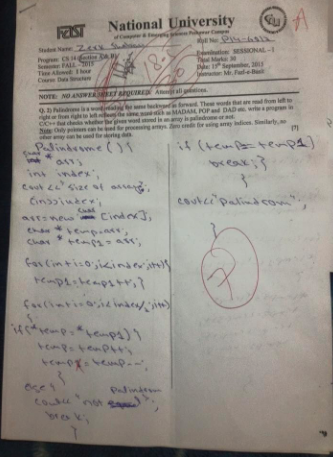 National University
of Computer & Emerging Sciences Peshawar Campus
Student Name:
Roll No:
Program: CS
Examination: SESSIONAL – I
Semester: FALL - 2013
Total Marks: 30
Time Allowed: 1 hour
Date: 15th September, 2013
Course: Data Structure
Instructor: Mr. Fazl-e-Basit
NOTE: NO ANSWER SHEET REQUIRED. Attempt all questions.
Q. 2) Palindrome is a word reading the same backward as forward. These words that are read from left to
right or from right to left reflects the same word such as MADAM, POP and DAD etc. write a program in
C/C++ that checks whether the given word stored in an array is palindrome or not.
Note: Only pointers can be used for processing arrays. Zero credit for using array indices. Similarly, no
other array can be used for storing data. [7]
Palindrome () {
* arr;
int index;
cout << "size of array";
cin>>index;
arr=new [index];
char * temp=arr;
char * temp1 = arr;
for(int i=0; i<index; i++){
temp1=temp1++; }
for(int i=0; i<index/2; i++)
{
if(*temp = *temp1) {
temp=temp++;
temp1=temp--;
}
else {
cout<< "not palindrom";
break;
}
if (temp = temp1)
break; }
}
cout<< "Palindrom";
}
7